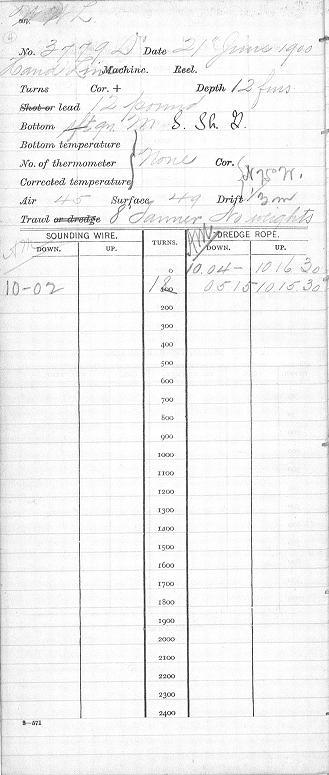 No. 3779 D. Date 21 June 1900
Hand Line Machine. Reel.
Turns Cor. + Depth 12 fms
Shot or lead 12 pound
Bottom gn. M. S. Sh. G.
Bottom temperature
No. of thermometer None Cor.
Corrected temperature
Air 45 Surface 49 Drift 1/3 m
Trawl or dredge 8' Tanner No weights
SOUNDING WIRE. TURNS. DREDGE ROPE.
DOWN. UP. DOWN. UP.
AM AM
0 10.04- 10.16.30
10-02 18 100 0515 10.15.30
200
300
400
500
600
700
800
900
1000
1100
1200
1300
1400
1500
1600
1700
1800
1900
2000
2100
2200
2300
2400
S—571